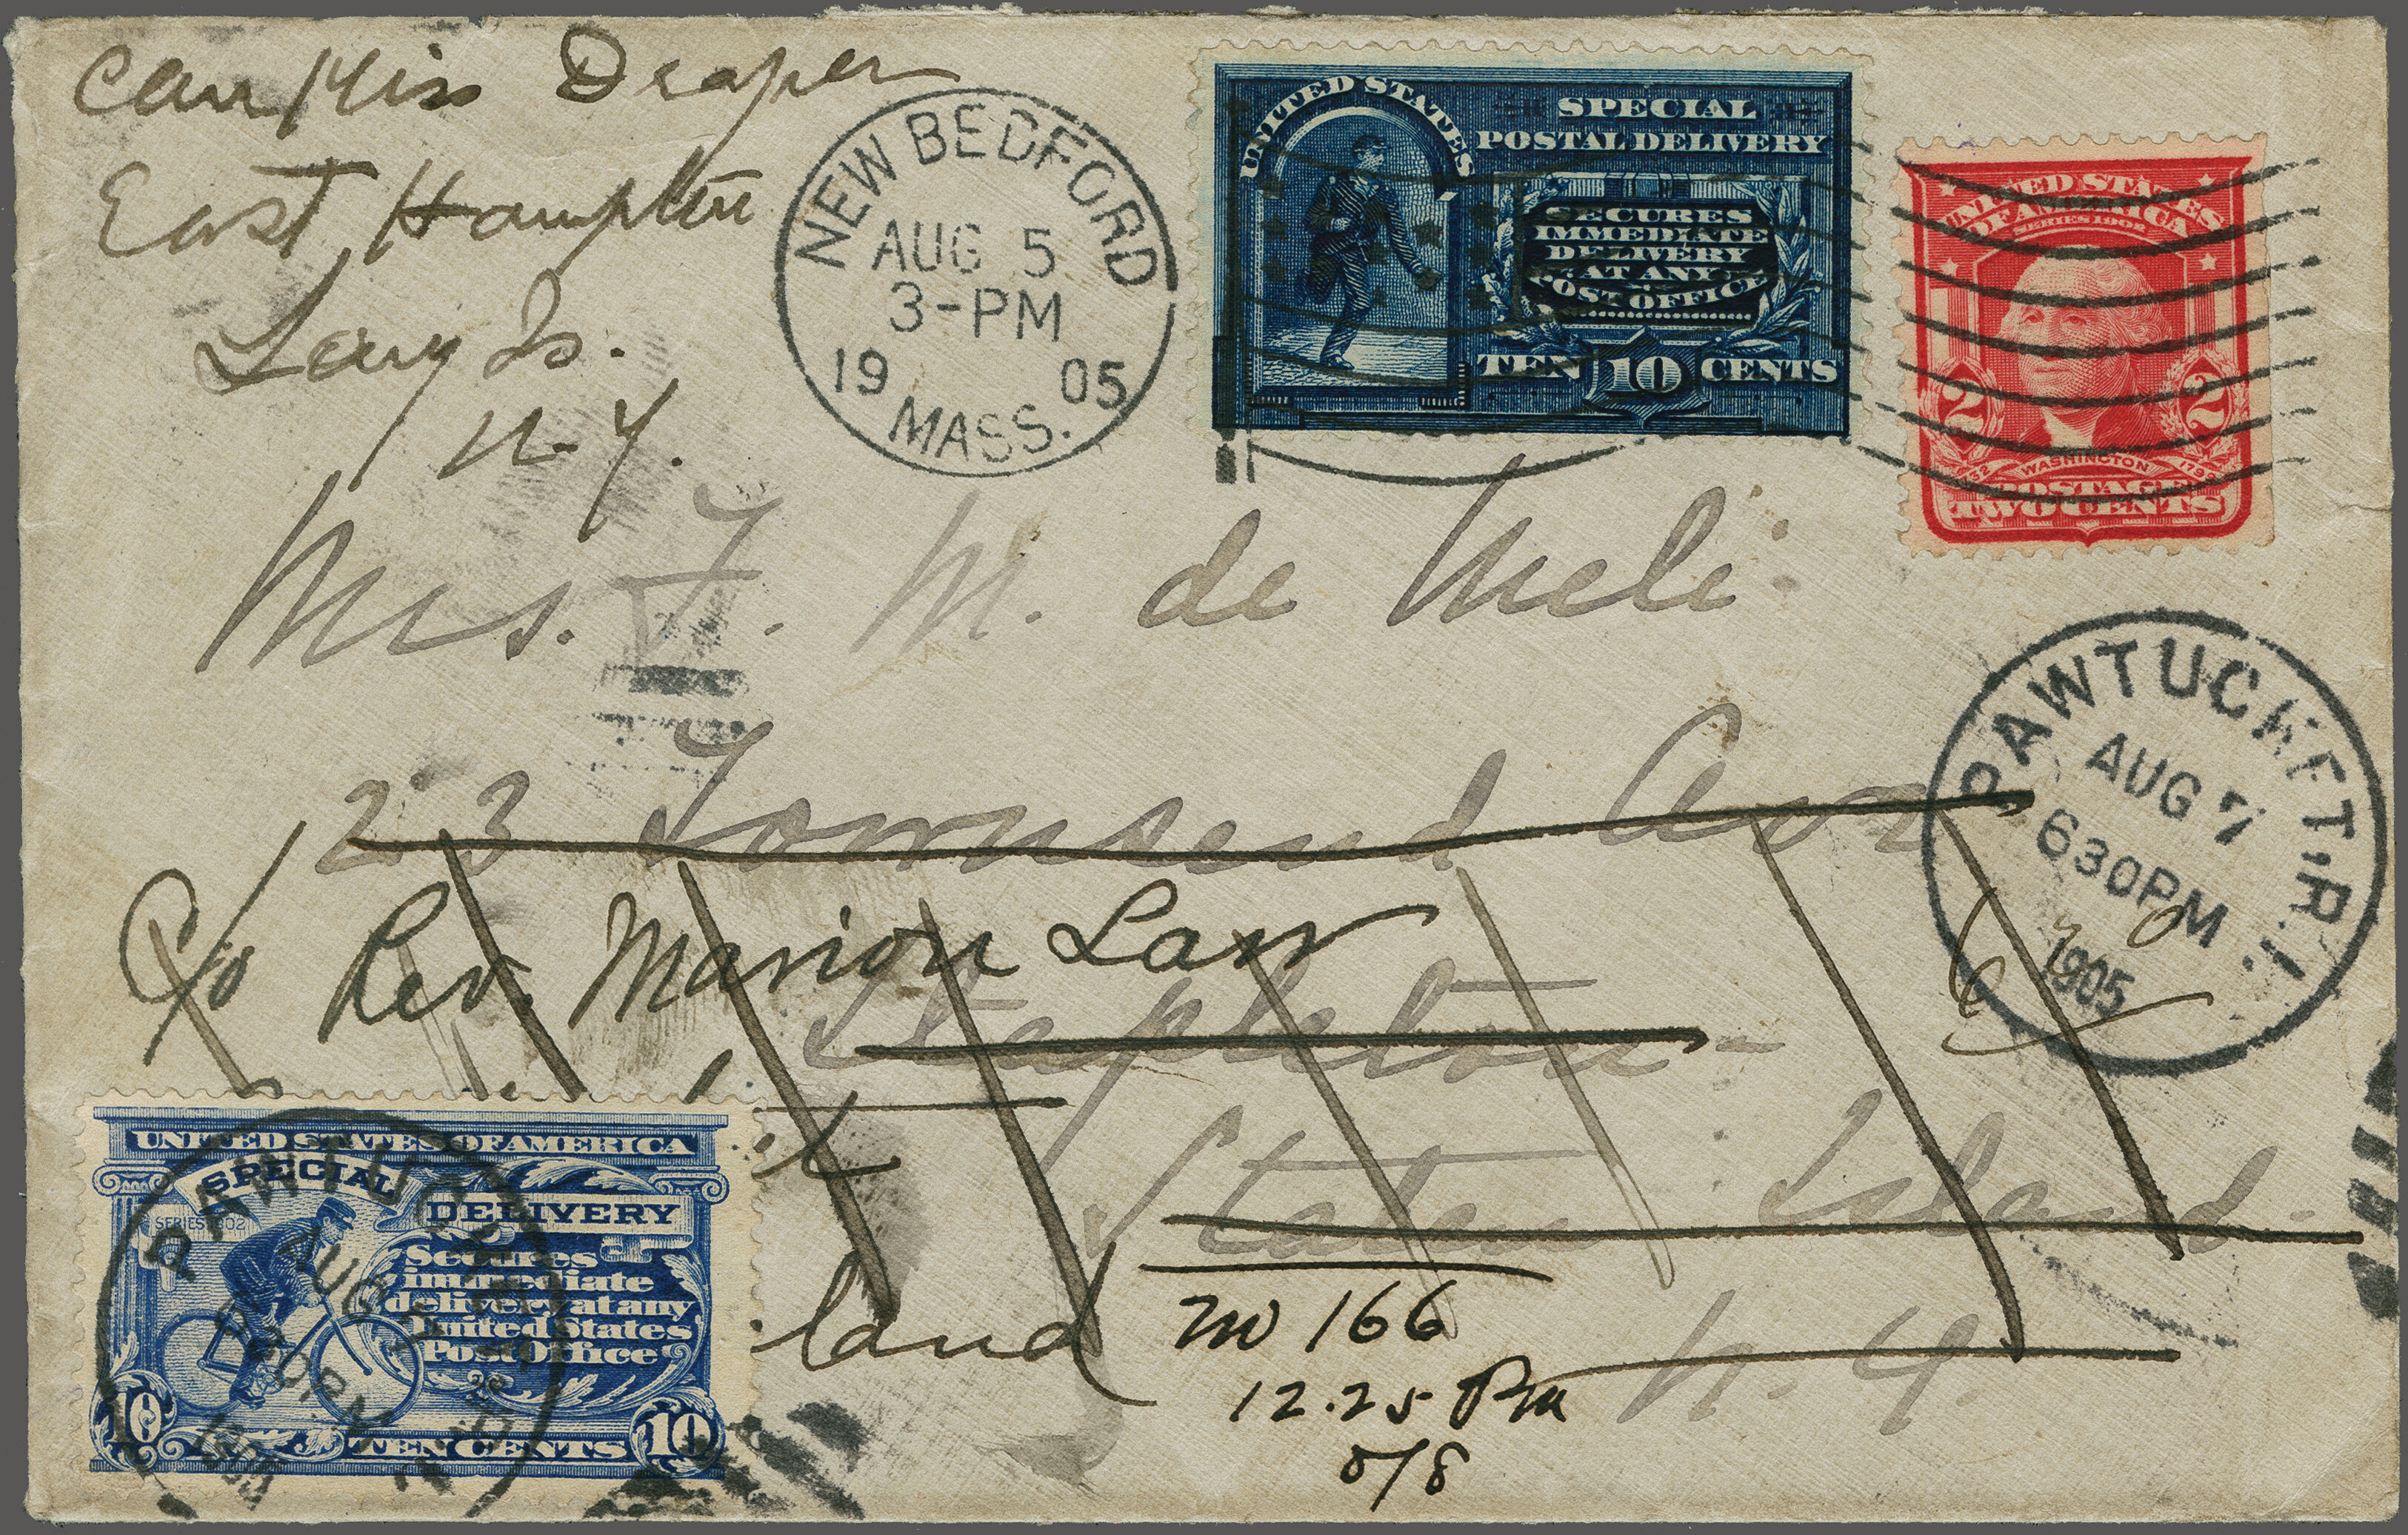 Care Miss Draper
East Hampton
Long Is.
N.Y.
NEW BEDFORD
AUG 5
3-PM
19 05
MASS.
UNITED STATES
SPECIAL
POSTAL DELIVERY
SECURES
IMMEDIATE
DELIVERY
AT ANY
POST OFFICE
TEN 10 CENTS
UNITED STATES
OF AMERICA
SERIES 1902
2 2
WASHINGTON
POSTAGE
TWO CENTS
Mrs. F. M. de Meli
PAWTUCKET, R.I.
AUG 7
630PM
1905
23 Townsend Ave
c/o Rev. Marion Law
Stapleton -
Staten Island.
N.Y.
UNITED STATES OF AMERICA
SPECIAL
DELIVERY
SERIES 1902
Secures
immediate
delivery at any
United States
Post Office
10 10
TEN CENTS
PAWTUC
AUG
land
no 166
12.25 Pm
8/8